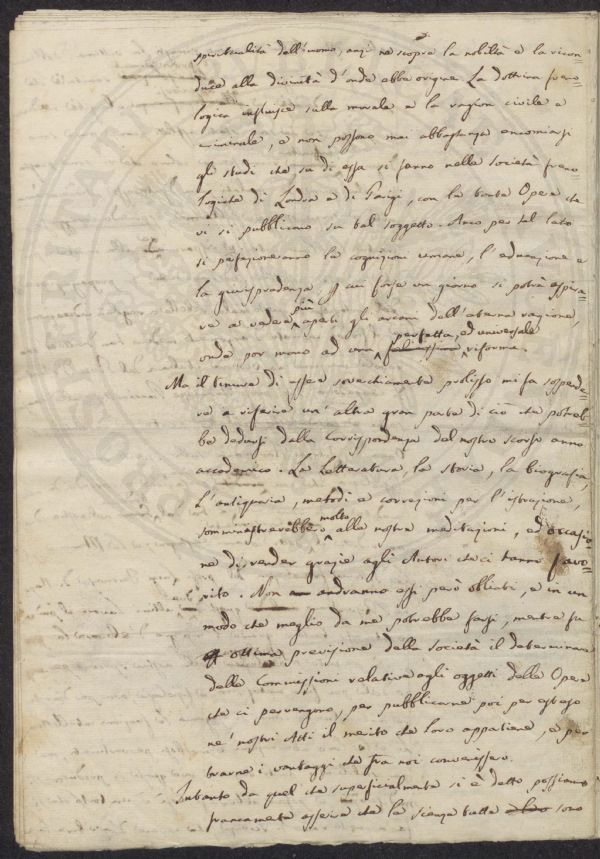 spiritualità dell'uomo, anzi ne scopre la nobiltà e la ricon-
duce alla divinità d'onde ebbe origine. La dottrina freno-
logica influisce sulla morale e la ragion civile e
criminale, e non possono mai abbastanza encomiarsi
gli studi che su di essa si fanno nelle Società freno
logiche di Londra e di Parigi, con le tante Opere che
vi si pubblicano su tal soggetto. Anco per tal lato
si perfezioneranno le cognizioni umane, l'educazione e
la giurisprudenza. E qui forse un giorno si potrà aspira-
re a vedere più aperti gli arcani dell'eterna ragione,
onde por mano ad una perfetta, ed universale riforma.
Ma il timore di essere soverchiamente prolisso mi fa sospende-
re a riferire un'altra gran parte di ciò che potreb-
be dedursi dalla Corrispondenza del nostro scorso anno
accademico. La Letteratura, la storia, la biografia,
l'antiquaria, metodi e correzioni per l'istruzione,
somministrerebbero molto alle nostre meditazioni, ed occasio-
ne di render grazie agli Autori che ci hanno favo-
rito. Non andranno essi però obliati, e in un
modo che meglio da me potrebbe farsi, mentre fu
ottima previsione della società il determinare
delle Commissioni relative agli oggetti delle Opere
che ci pervengono, per pubblicarne poi per esteso
ne' nostri Atti il merito che loro appartiene, e per
trarne i vantaggi che fra noi convenissero.
Intanto da quel che superficialmente si è detto possiamo
francamente asserire che le scienze tutte sono